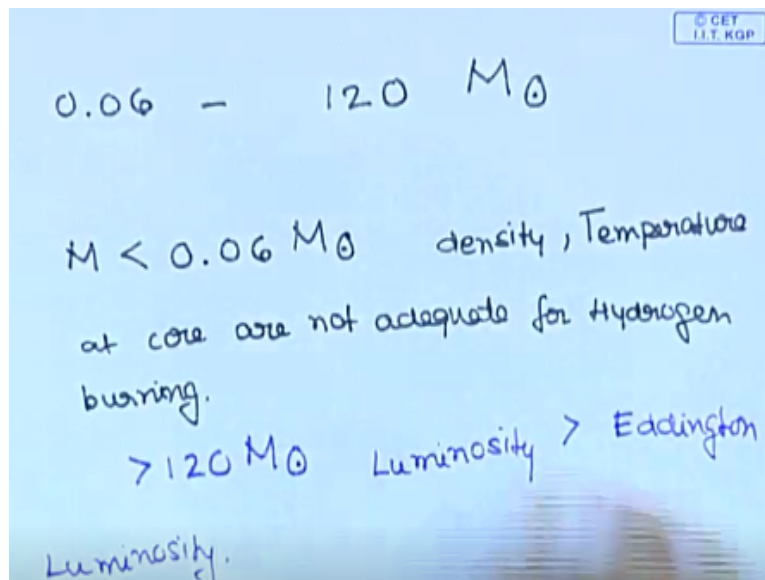 © CET
I.I.T. KGP
0.06 - 120 M⊙
M < 0.06 M⊙ density, Temperature
at core are not adequate for Hydrogen
burning.
>120 M⊙ Luminosity > Eddington
Luminosity.